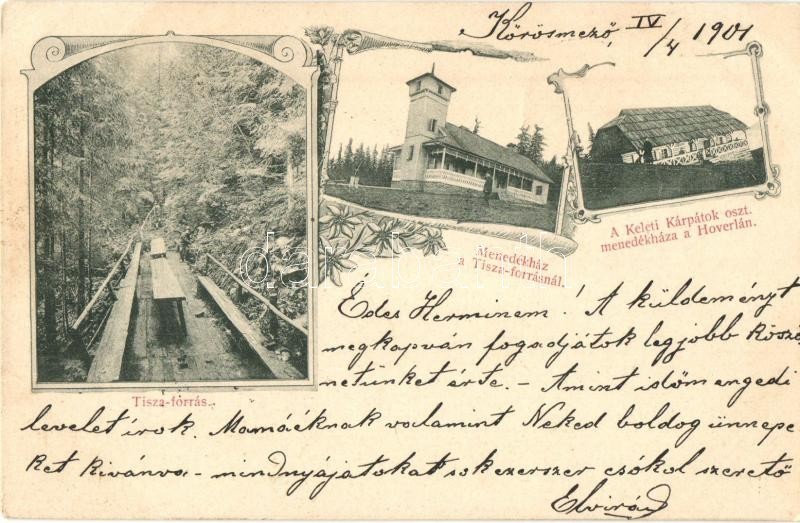 Kőrösmező, IV/4 1901
A Keleti Kárpátok oszt.
menedékháza a Hoverlán.
Menedékház
a Tisza-forrásnál.
Tisza-forrás.
Édes Herminem! A küldeményt
megkapván fogadjátok legjobb Kösze-
netünket érte. - Amint időm engedi
levelet irok. Mamáéknak valamint Neked boldog ünnepe
ket kivánva - mindnyájatokat sokezerszer csókol szerető
Elvirád